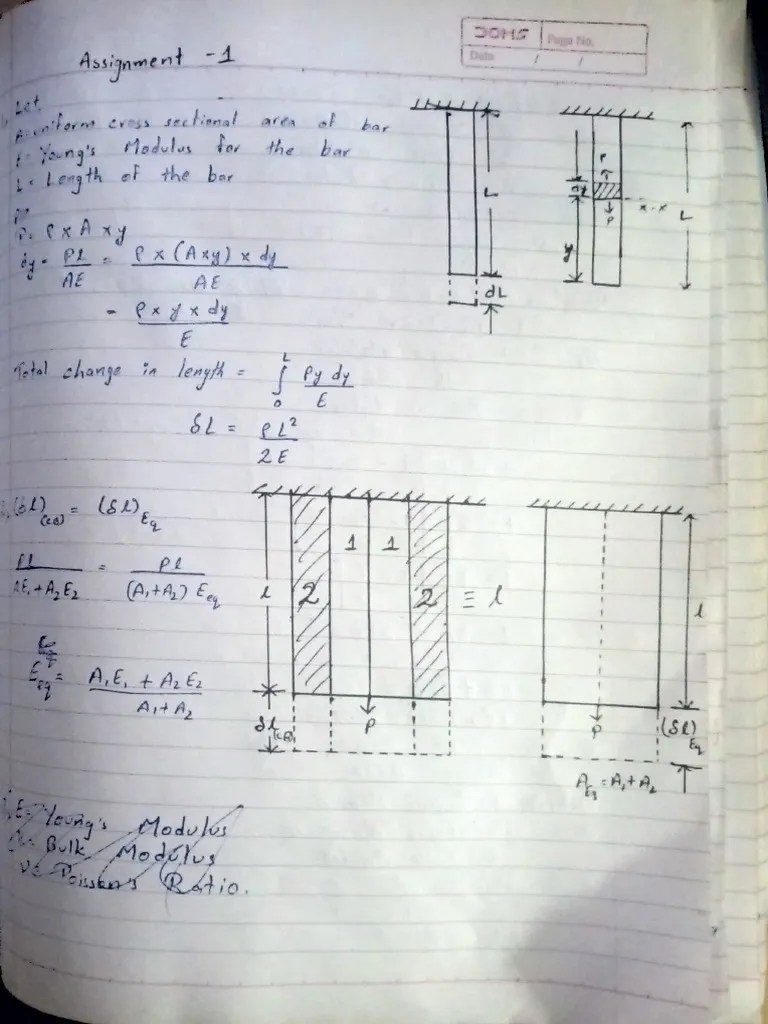 DOMS Page No.
Date / /
Assignment - 1
Let,
A = uniform cross sectional area of bar
E = Young's Modulus for the bar
L = Length of the bar
P = ρ x A x y
dy = Pl/AE = ρ x (A x y) x dy / AE
= ρ x y x dy / E
Total change in length = ∫₀ᴸ ρy dy / E
δL = ρL² / 2E
L
dL
P
dy
x-x
P
y
L
(δl)(CB) = (δl)Eq
Pl / AE₁ + A₂E₂ = Pl / (A₁+A₂) Eeq
Eeq = A₁E₁ + A₂E₂ / A₁ + A₂
l
2 1 1 2
≡ l
l
δl(CB)
P
P
(δl)Eq
AEq = A₁ + A₂
E = Young's Modulus
Bulk Modulus
Poisson's Ratio.